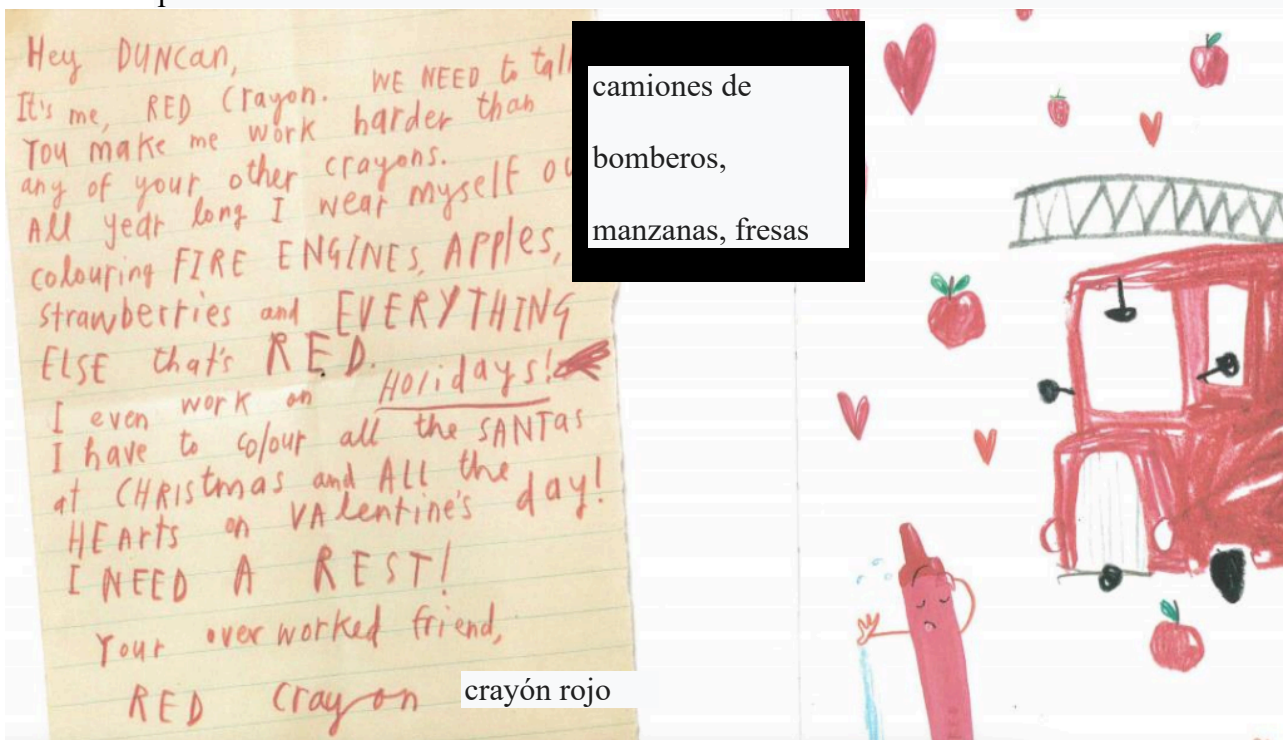 Hey DUNCan,
It's me, RED Crayon. WE NEED to tal
You make me work harder than
any of your other crayons.
All year long I wear myself
colouring FIRE ENGINES, APPles,
strawberries and EVERYTHING
ELSE that's RED.
I even work on Holidays!
I have to colour all the SANTas
at CHRIStmas and ALL the
HEArts on VAlentine's day!
I NEED A REST!
Your overworked friend,
RED Crayon
crayón rojo
camiones de
bomberos,
manzanas, fresas